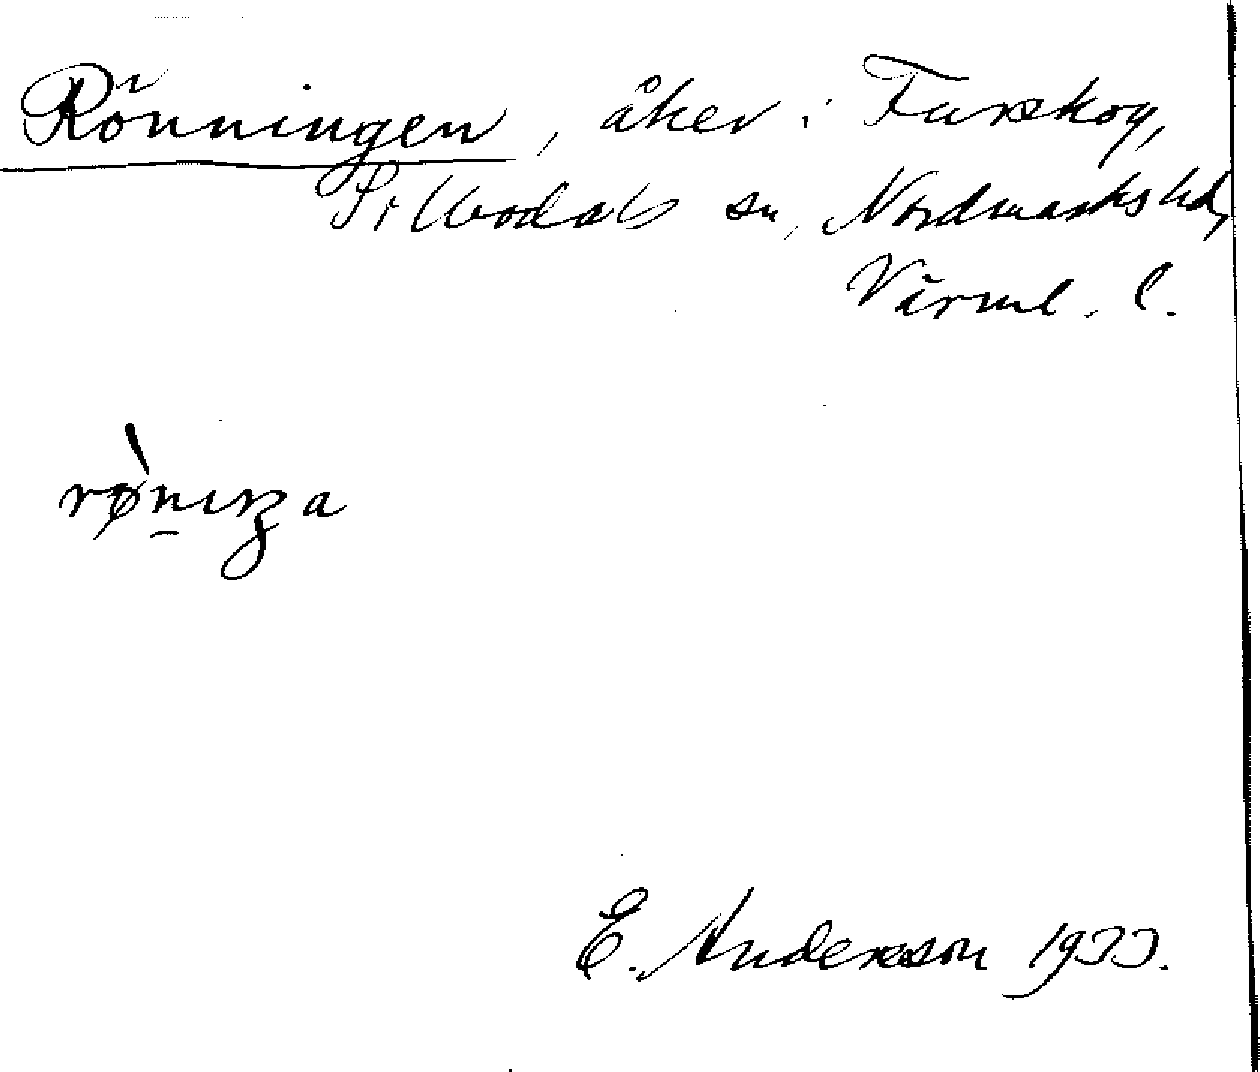 Rönningen, åker i Furskog,
Sillbodals sn, Nordmarks hd,
Värml. l.
rø̀nıŋa
E. Andersson 1933.